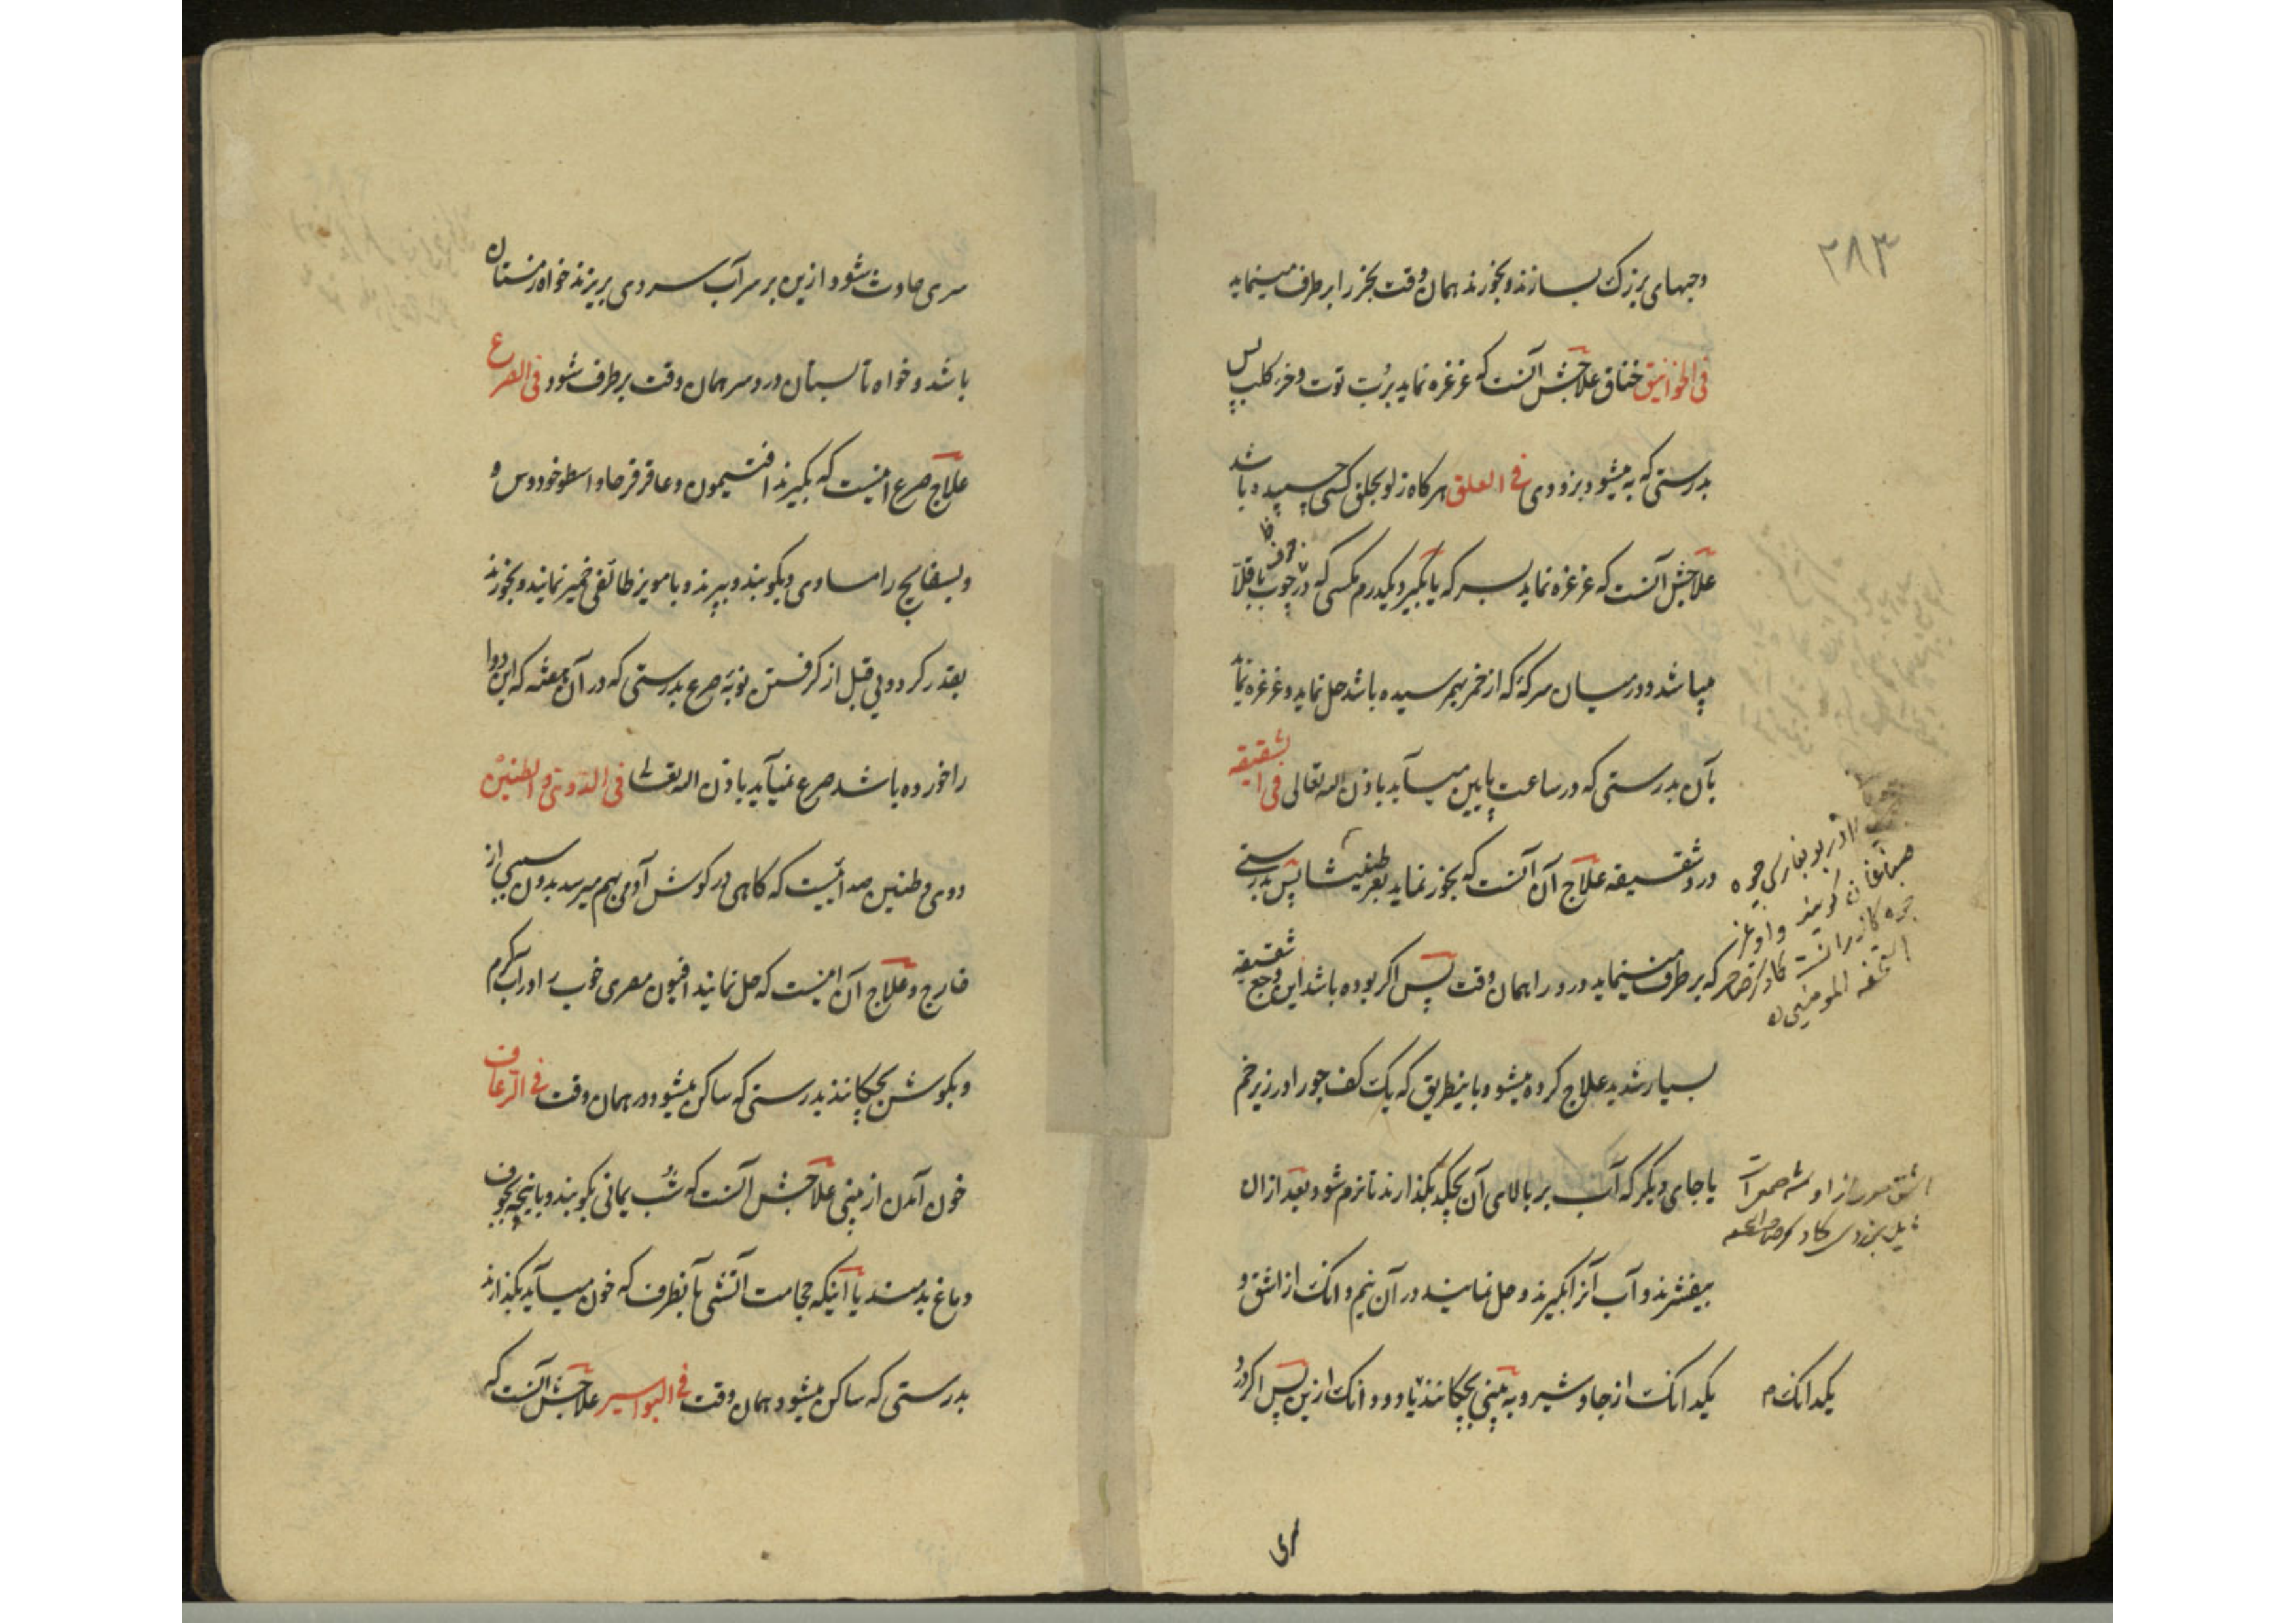 ۲۸۳
وجبهای بزرگ بسازند و بخورند همان وقت بخر را برطرف مینماید
فی الخوانیق خناق علاجش آنست که غرغره نماید برُبّ توت و خرء کلب پس
بدرستی که به میشود بزودی فی العلق هرکاه زلو بحلق کسی چسپیده باشد
علاجش آنست که غرغره نماید بسرکه یا بگیرد یکدرم مکسی که در جوف چوب باقلا
میباشد و در میان سرکهٔ که از خمر بهم رسیده باشد حل نماید و غرغره نماید
بآن بدرستی که در ساعت پایین میآید باذن الله تعالی فی الشقیقه
درد شقیقه علاج آن آنست که بخور نماید بعرطنیثا پس بدرستی
که برطرف مینماید درد را همان وقت پس اکر بوده باشد این وجع شقیقه
بسیار شدید علاج کرده میشود باینطریق که یک کف جو را در زیر خم
یا جای دیکر که آب بر بالای آن بچکد بکذارند تا نرم شود بعد ازان
بیفشرند و آب آنرا بگیرند و حل نمایند در آن نیم دانک از اشق و
یکدانک از جاوشیر و به بینی بچکانند یا دو دانک ازین پس اکر درد
یکدانک م
سری حادث شود ازین بر سر آب سردی بریزند خواه زمستان
باشد و خواه تابستان درد سر همان وقت برطرف شود فی الصرع
علاج صرع اینست که بکیرند افتیمون و عاقرقرحا و اسطوخودوس و
و بسفایج را مساوی و بکوبند و ببیزند و با مویز طائفی خمیر نمایند و بخورند
بقدر کردویی قبل از کرفتن نوبهٔ صرع بدرستی که در آن هفته که این دوا
را خورده باشد صرع نمیآید باذن الله تعالی فی الدوی و الطنین
دوی و طنین صدائیست که کاهی در کوش آدمی بهم میرسد بدون سببی از
خارج و علاج آن اینست که حل نمایند افیون مصری خوب را در آب کرم
و بکوش بچکانند بدرستی که ساکن میشود در همان وقت فی الرعاف
خون آمدن از بینی علاجش آنست که شب یمانی بکوبند و بانیچه بجوف
دماغ بدمند یا اینکه حجامت آتشی بآنطرف که خون میآید بکذارند
بدرستی که ساکن میشود همان وقت فی البواسیر علاجش آنست که